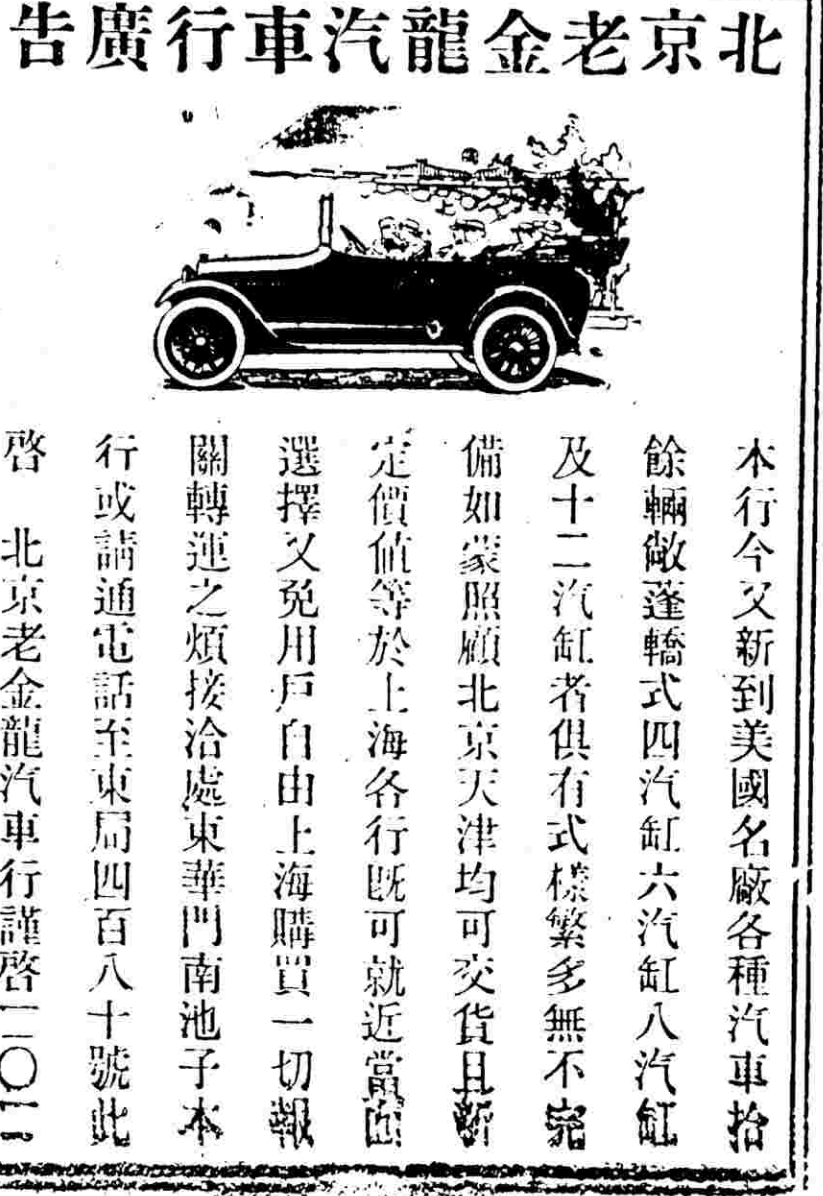 北京老金龍汽車行廣告
本行今又新到美國名廠各種汽車拾
餘輛敞蓬轎式四汽缸六汽缸八汽缸
及十二汽缸者俱有式樣繁多無不完
備如蒙照顧北京天津均可交貨且新
定價値等於上海各行旣可就近當面
選擇又免用戶自由上海購買一切報
關轉運之煩接洽處東華門南池子本
行或請通電話至東局四百八十號此
啓 北京老金龍汽車行謹啓